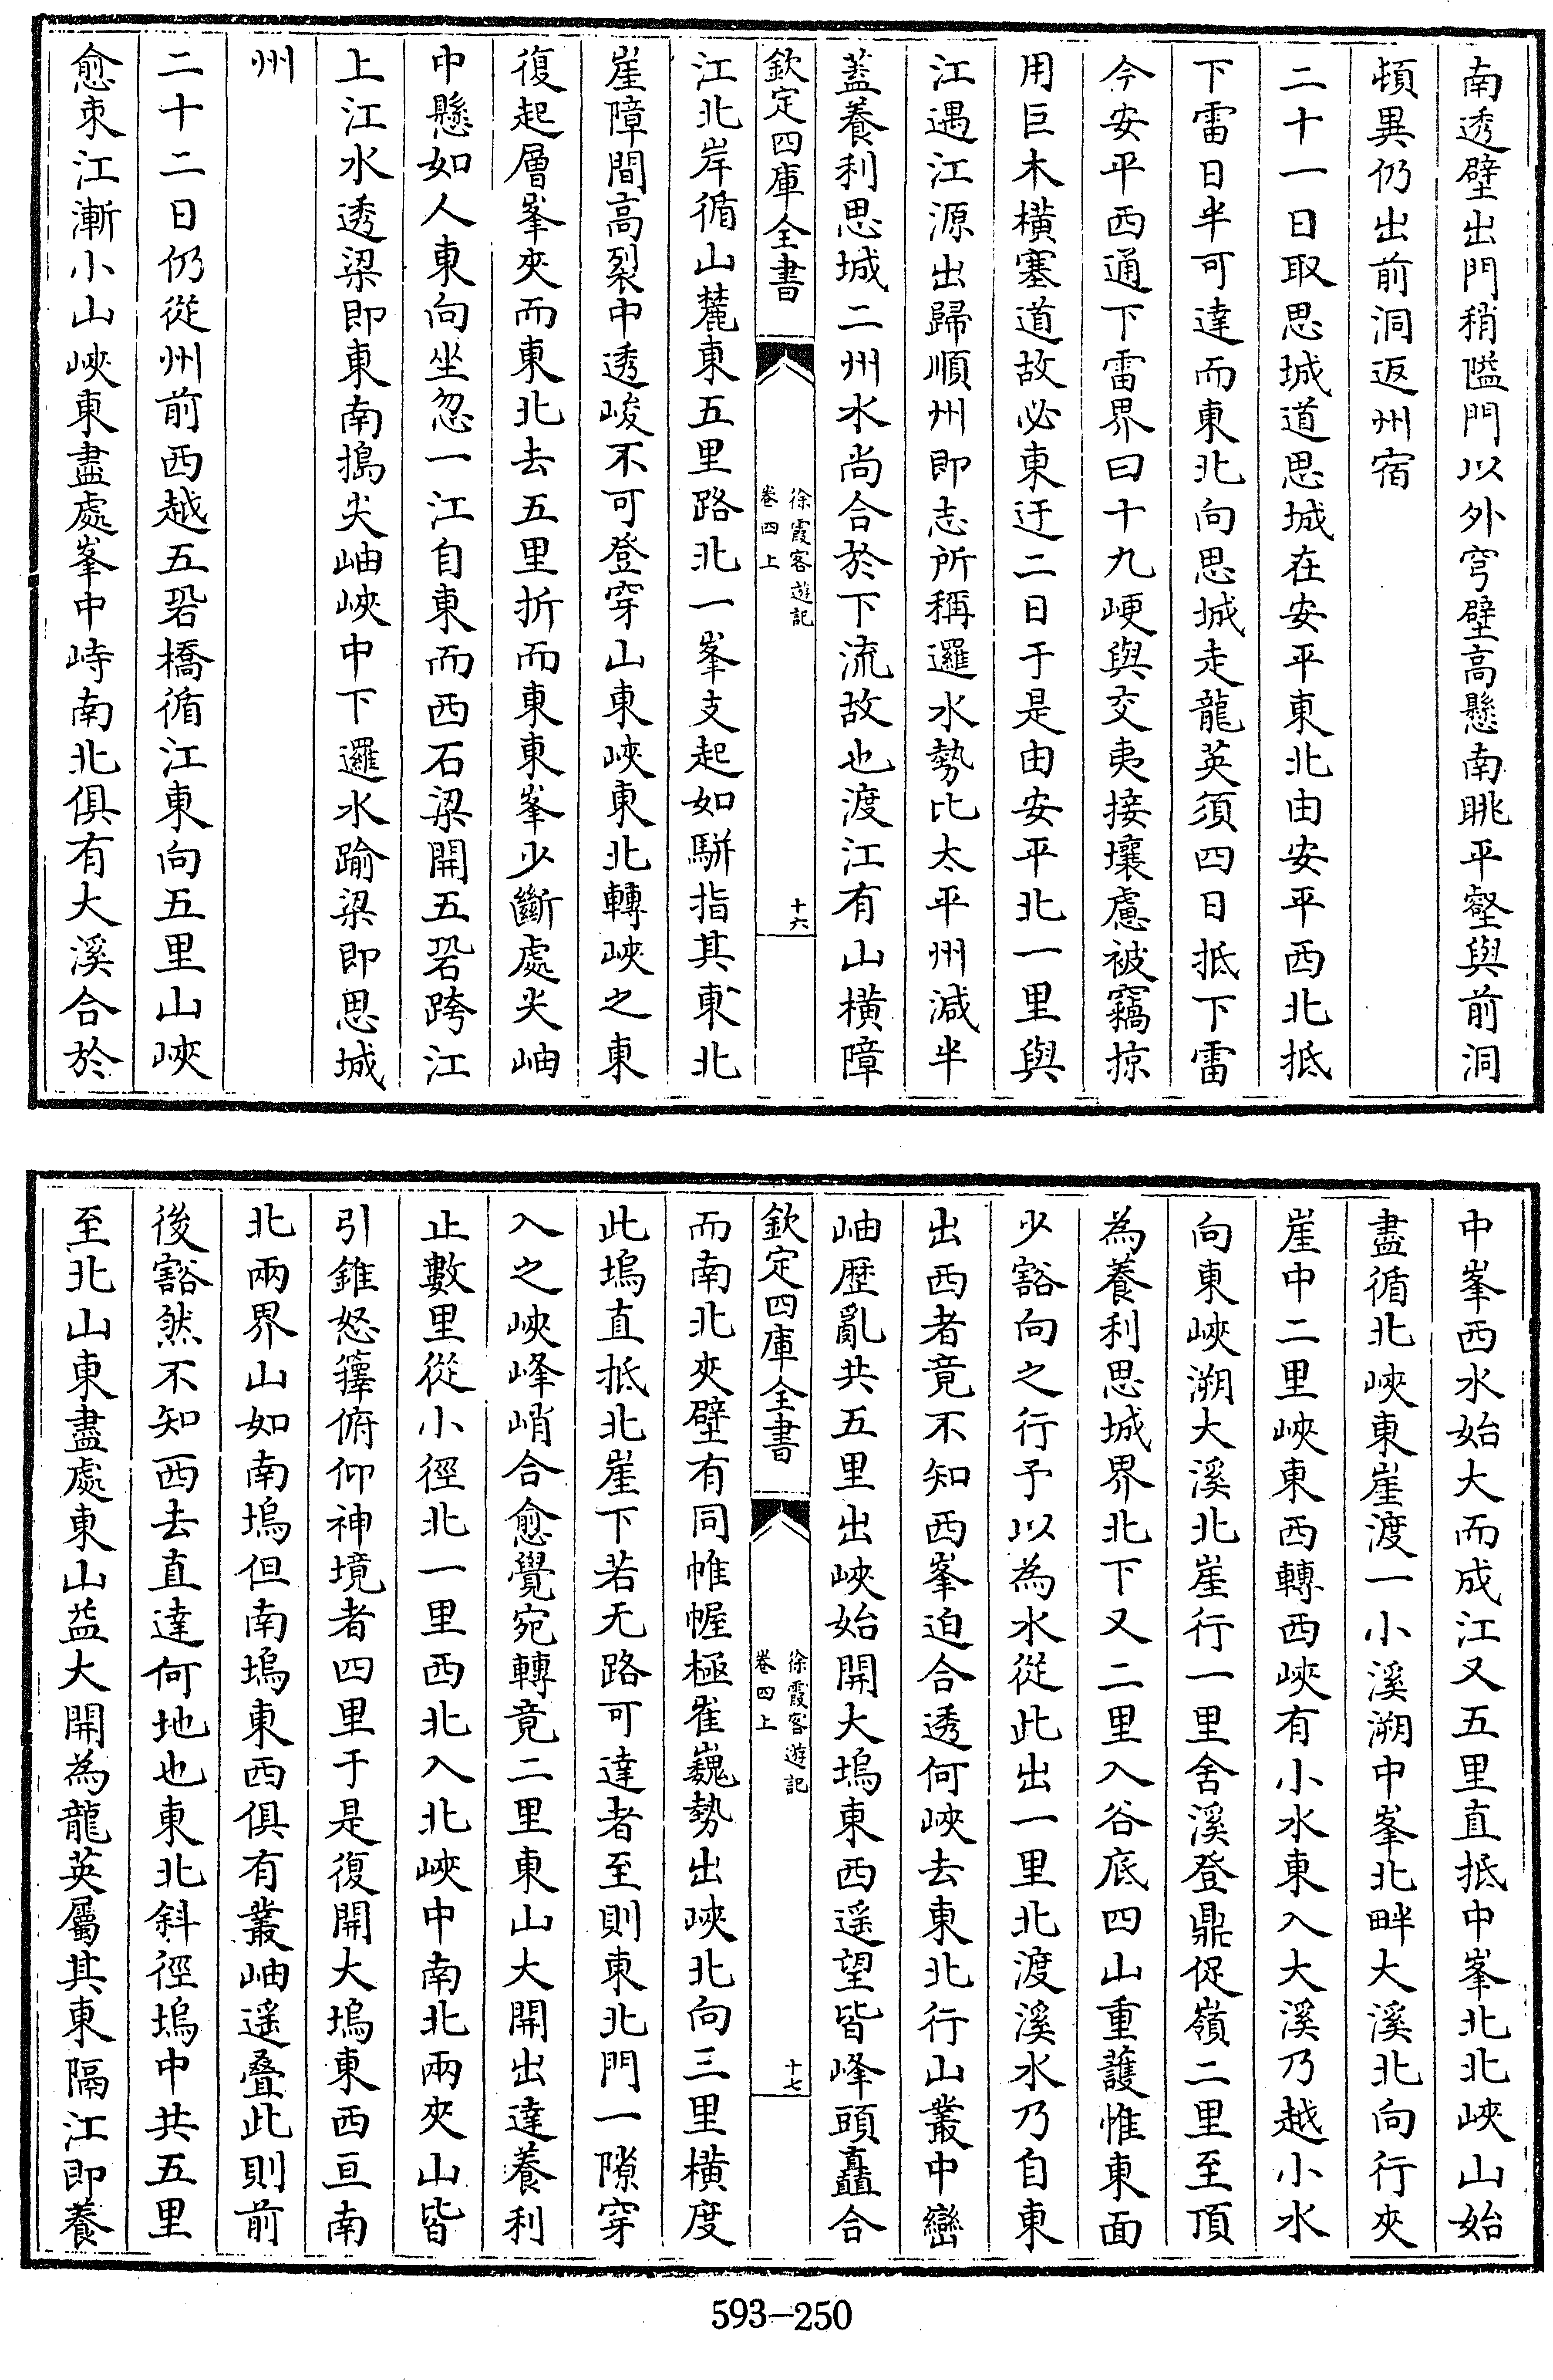 南透壁出門稍隘門以外穹壁高懸南眺平壑與前洞
頓異仍出前洞返州宿
二十一日取思城道思城在安平東北由安平西北抵
下雷日半可達而東北向思城走龍英須四日抵下雷
今安平西通下雷界曰十九峺與交夷接壤慮被竊掠
用巨木橫塞道故必東迂二日于是由安平北一里與
江遇江源出歸順州即志所稱邏水勢比太平州減半
蓋養利思城二州水尚合於下流故也渡江有山橫障
欽定四庫全書
徐霞客遊記
卷四上
十六
江北岸循山麓東五里路北一峯支起如駢指其東北
崖障間高裂中透峻不可登穿山東峽東北轉峽之東
復起層峯夾而東北去五里折而東東峯少斷處尖岫
中懸如人東向坐忽一江自東而西石梁開五䂬跨江
上江水透梁即東南搗尖岫峽中下邏水踰梁即思城
州
二十二日仍從州前西越五䂬橋循江東向五里山峽
愈束江漸小山峽東盡處峯中峙南北俱有大溪合於
中峯西水始大而成江又五里直抵中峯北北峽山始
盡循北峽東崖渡一小溪溯中峯北畔大溪北向行夾
崖中二里峽東西轉西峽有小水東入大溪乃越小水
向東峽溯大溪北崖行一里舍溪登鼎促嶺二里至頂
為養利思城界北下又二里入谷底四山重護惟東面
少豁向之行予以為水從此出一里北渡溪水乃自東
出西者竟不知西峯迫合透何峽去東北行山叢中巒
岫歷亂共五里出峽始開大塢東西遥望皆峰頭矗合
欽定四庫全書
徐霞客遊記
卷四上
十七
而南北夾壁有同帷幄極崔巍勢出峽北向三里橫度
此塢直抵北崖下若无路可達者至則東北門一隙穿
入之峽峰峭合愈覺宛轉竟二里東山大開出達養利
止數里從小徑北一里西北入北峽中南北兩夾山皆
引錐怒籜俯仰神境者四里于是復開大塢東西亘南
北兩界山如南塢但南塢東西俱有叢岫遥疊此則前
後豁然不知西去直達何地也東北斜徑塢中共五里
至北山東盡處東山益大開為龍英屬其東隔江即養
593-250